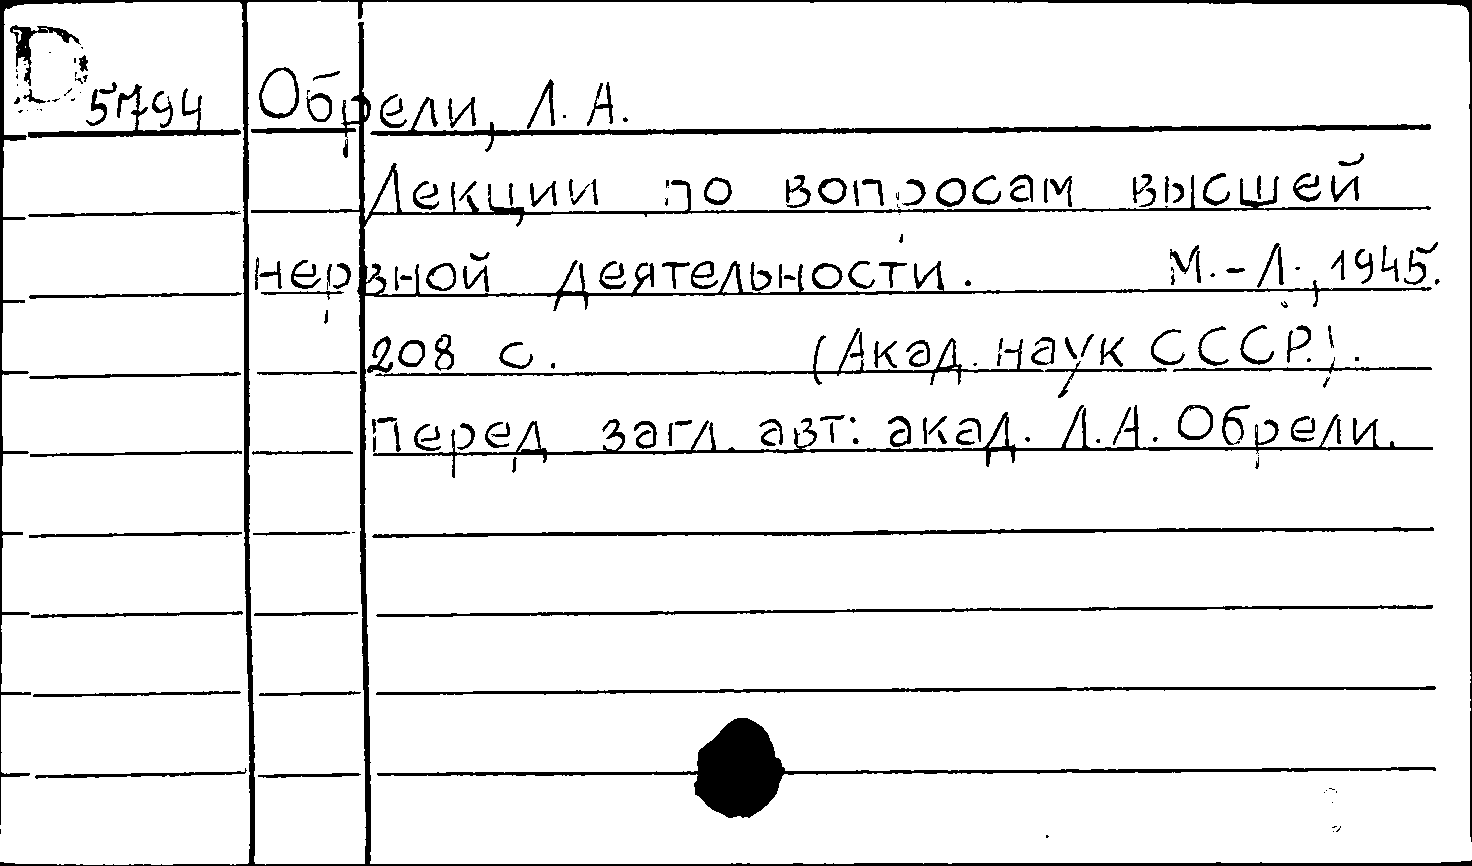 D 5794 Обрели, Л. А.
Лекции по вопросам высшей
нервной деятельности. М.-Л., 1945.
208 с. (Акад. наук СССР.).
Перед загл. авт: акад. Л.А. Обрели.